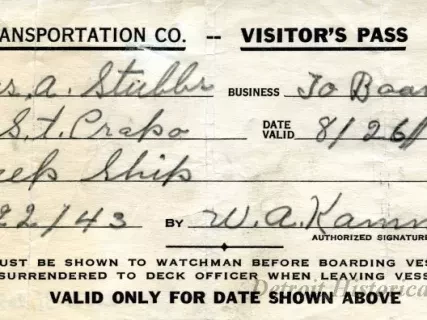 ANSPORTATION CO. -- VISITOR'S PASS
s. A. Stubbs BUSINESS To Boar
S.t. Crapo DATE VALID 8/26/
eep Ship
22/43 BY W. A. Kamm
AUTHORIZED SIGNATURE
UST BE SHOWN TO WATCHMAN BEFORE BOARDING VES
SURRENDERED TO DECK OFFICER WHEN LEAVING VESS
VALID ONLY FOR DATE SHOWN ABOVE
Detroit Historica